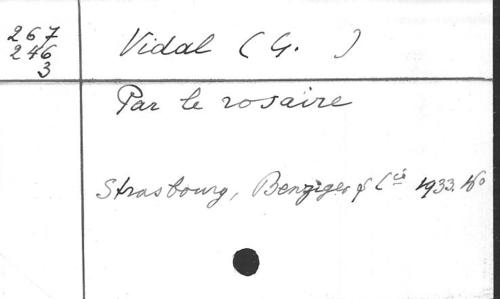 267
246
3
Vidal (G. )
Par le rosaire
Strasbourg, Benziger & Cie 1933. 16°